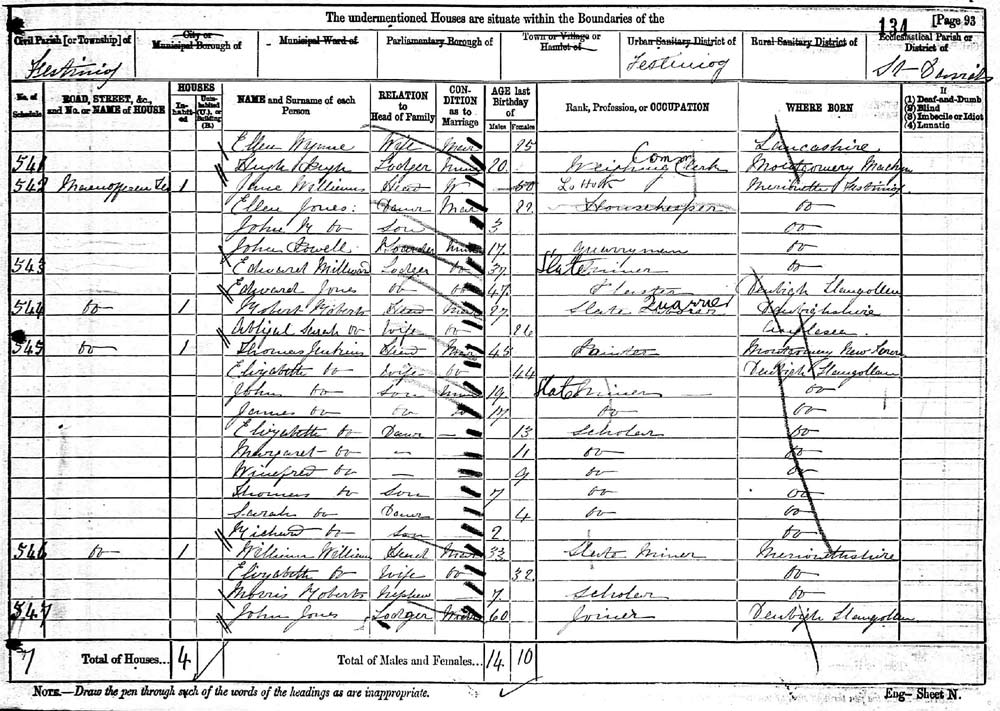 The undermentioned Houses are situate within the Boundaries of the
134 [Page 93
Civil Parish [or Township] of City or Municipal Borough of Municipal Ward of Parliamentary Borough of Town or Village or Hamlet of Urban Sanitary District of Rural Sanitary District of Ecclesiastical Parish or District of
Festiniog Festiniog St
No. of Schedule ROAD, STREET, &c., and No. or NAME of HOUSE HOUSES Inhabited Uninhabited (U.), or Building (B.) NAME and Surname of each Person RELATION to Head of Family CONDITION as to Marriage AGE last Birthday of Males Females Rank, Profession, or OCCUPATION WHERE BORN If (1) Deaf-and-Dumb (2) Blind (3) Imbecile or Idiot (4) Lunatic
Ellen Wynne Wife Mar 25 Lancashire
541 Hugh Lodger 20 Weighing Clerk Comm Montgomery
542 1 Jane Williams Head W 50 Merioneth Festiniog
Ellen Jones Daur Mar 22 Housekeeper Do
John M Do Son 3 Do
John Howell Boarder 17 Quarryman Do
543 Edward Lodger Do 37 Slate Miner Do
Edward Jones Do Do 47 Denbigh Llangollen
544 Do 1 Robert Roberts Head Mar 27 Slate Quarrier Denbighshire
Abligal Sarah Do Wife Do 26
545 Do 1 Thomas Jenkins Head Mar 45 Montgomery New Town
Elizabeth Do Wife Do 44 Denbigh Llangollen
John Do Son 19 Slate Miner Do
James Do Do Do 17 Do Do
Elizabeth Do Daur — 13 Scholar Do
Margaret Do — 11 Do Do
Winefred Do — 9 Do Do
Thomas Do Son 7 Do Do
Sarah Do Daur 4 Do Do
Richard Do Son 2 Do
546 Do 1 William William Head Mar 33 Slate Miner Merionethshire
Elizabeth Do Wife Do 32 Do
Morris Roberts Nephew 7 Scholar Do
547 John Jones Lodger 60 Joiner Denbigh Llangollen
7 Total of Houses... 4 Total of Males and Females... 14 10
NOTE.—Draw the pen through such of the words of the headings as are inappropriate. Eng— Sheet N.